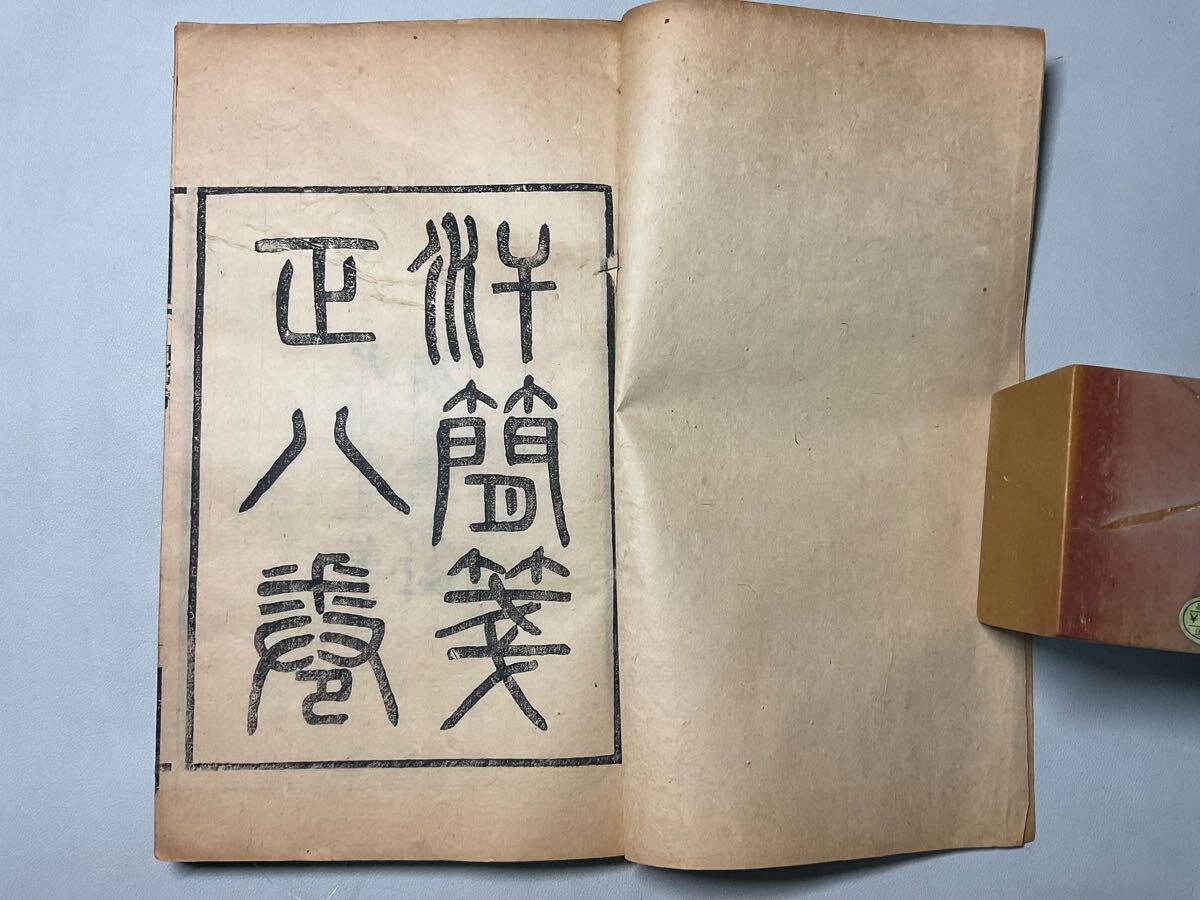 汗簡箋
正八卷
¥